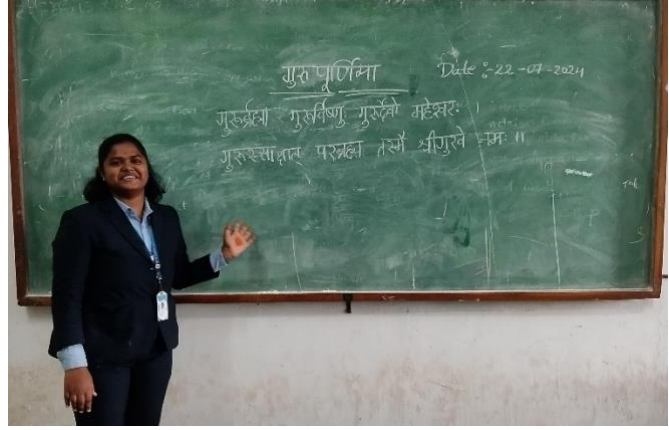 गुरु पूर्णिमा
Date :- 22-07-2024
गुरुर्ब्रह्मा गुरुर्विष्णुः गुरुर्देवो महेश्वरः ।
गुरुस्साक्षात् परब्रह्म तस्मै श्रीगुरवे नमः ॥